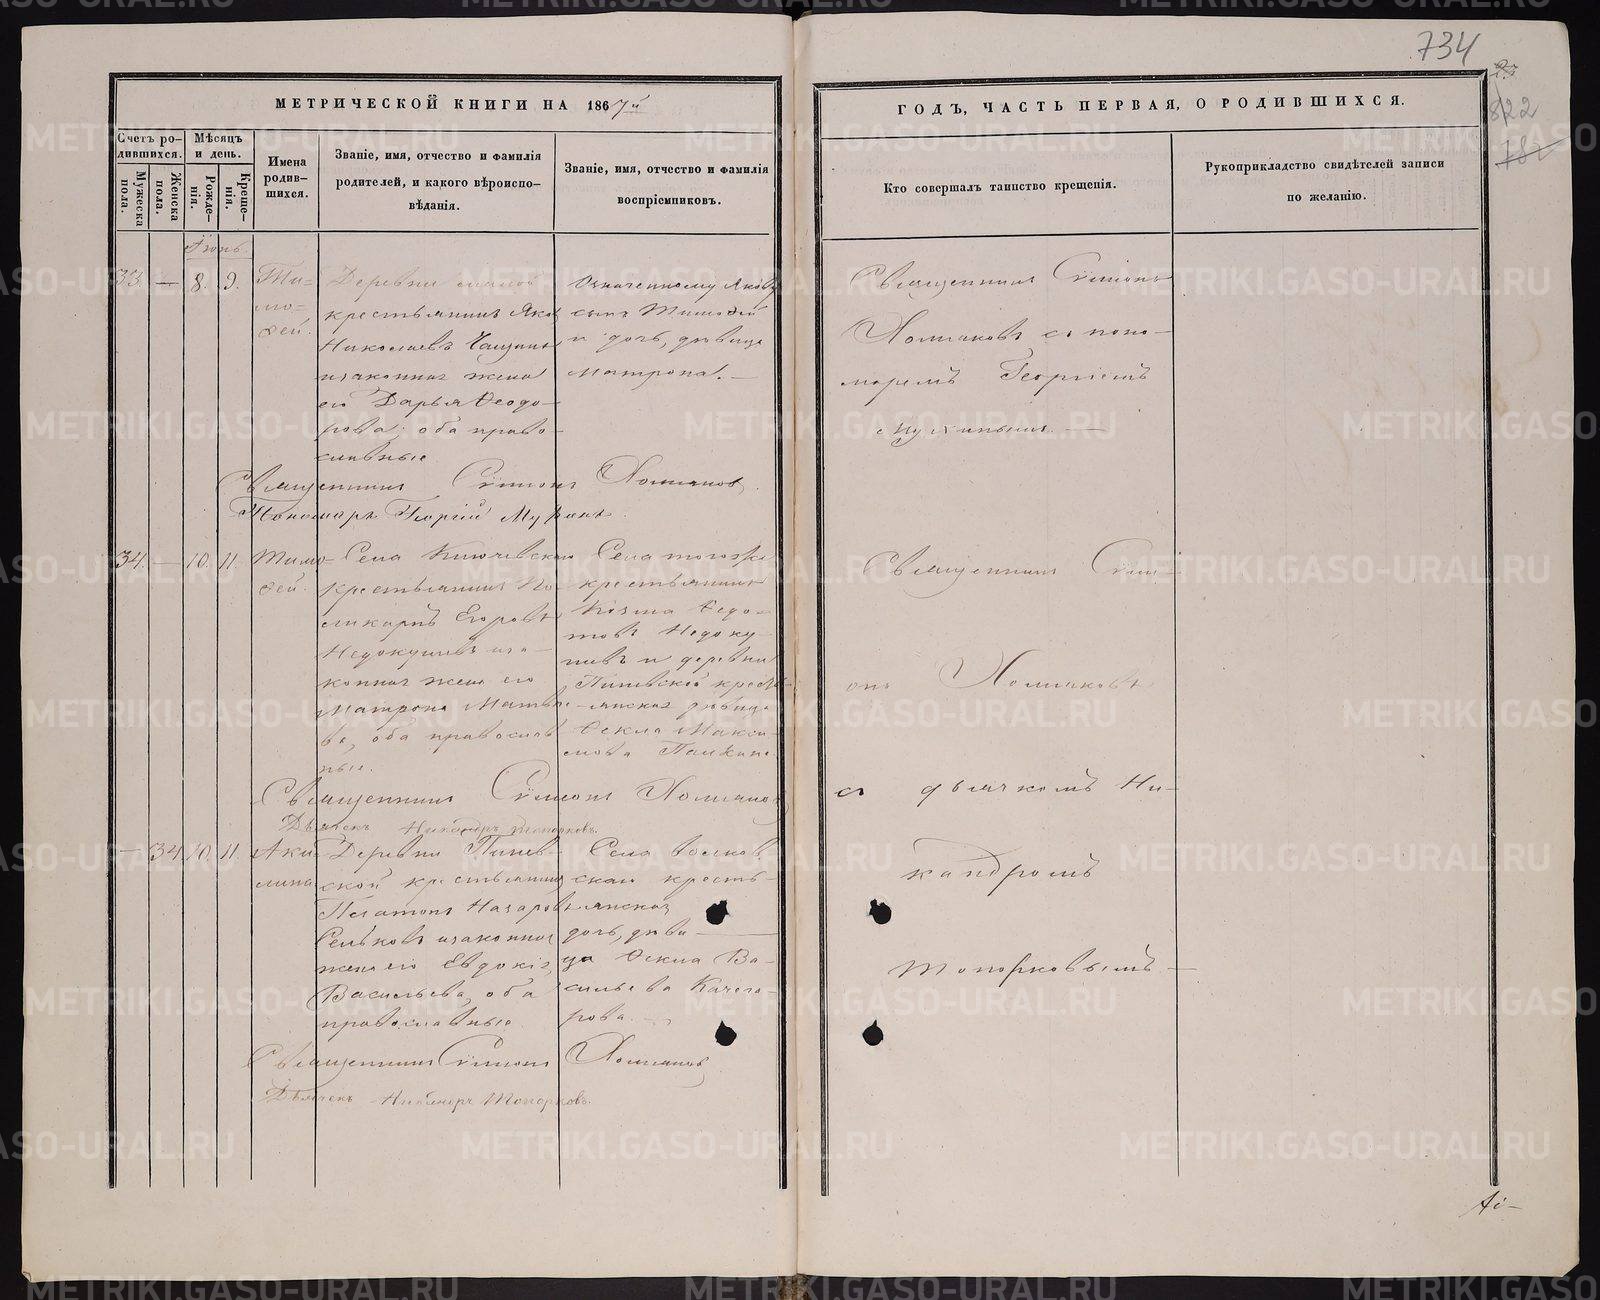 734
822
782
МЕТРИЧЕСКОЙ КНИГИ НА 1867й
ГОДЪ, ЧАСТЬ ПЕРВАЯ, О РОДИВШИХСЯ.
Счетъ ро-
дившихся.
Мужеска
пола.
Женска
пола.
Мѣсяцъ
и день.
Рожде-
нія.
Креще-
нія.
Имена
родив-
шихся.
Званіе, имя, отчество и фамилія
родителей, и какого вѣроиспо-
вѣданія.
Званіе, имя, отчество и фамилія
воспріемниковъ.
Кто совершалъ таинство крещенія.
Рукоприкладство свидѣтелей записи
по желанію.
Іюнь.
33. — 8. 9.
Ти-
мо-
ѳей.
Деревни
крестьянинъ Яков
Николаевъ
и законная жена
его Дарья Ѳеодо-
рова; оба право-
славные
Означенному Якову
сынъ Тимоѳей
и дочь, дѣвица
Матрона. —
Священникъ Сѵмеонъ
Холмаковъ съ поно-
маремъ Георгіемъ
Священникъ Сѵмеонъ Холмаковъ.
Пономарь Георгій
34. — 10. 11.
Тимо-
ѳей.
Села Ключевскаго
крестьянинъ По-
ликарпъ Егоровъ
Недокушевъ и за-
конная жена его
Матрона Матвѣе-
ва, оба православ-
ные.
Села тогоже
крестьянинъ
Козма Ѳедо-
товъ Недоку-
шевъ и деревни
крестья-
янская дѣвица
Ѳекла Макси-
мова
Священникъ Сѵме-
онъ Холмаковъ
съ дьячкомъ Ни-
кандромъ
Топорковымъ —
Священникъ Сѵмеонъ Холмаковъ
Дьячекъ Никандръ Топорковъ.
— 34 10. 11.
Аки-
лина
Деревни
ской крестьянинъ
Платонъ Назаровъ
и законная
жена его Евдокія
Васильева, оба
православные.
Села
скаго кресть-
янская
дочь, дѣви-
ца Ѳекла Ва-
сильева Качего-
рова. —
Священникъ Сѵмеонъ Холмаковъ
Дьячекъ Никандръ Топорковъ.
METRIKI.GASO-URAL.RU